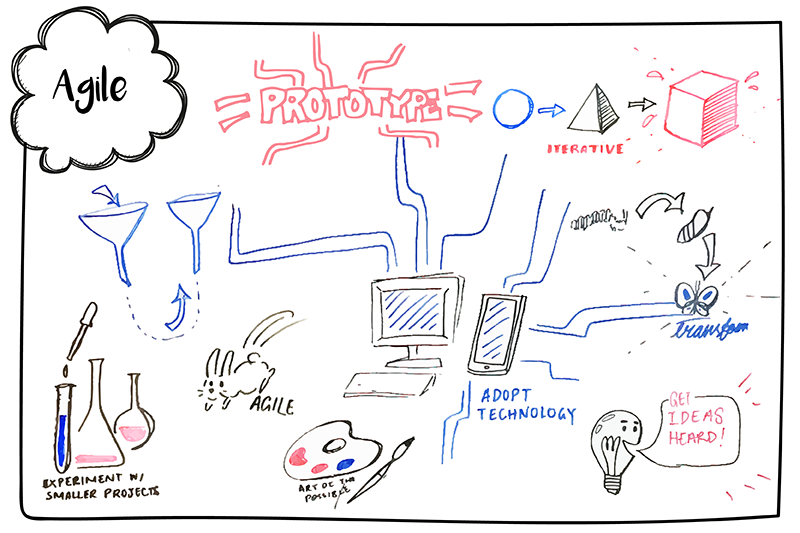 Agile
PROTOTYPE
ITERATIVE
transform
AGILE
ADOPT
TECHNOLOGY
GET
IDEAS
HEARD!
EXPERIMENT W/
SMALLER PROJECTS
ART OF THE
POSSIBLE